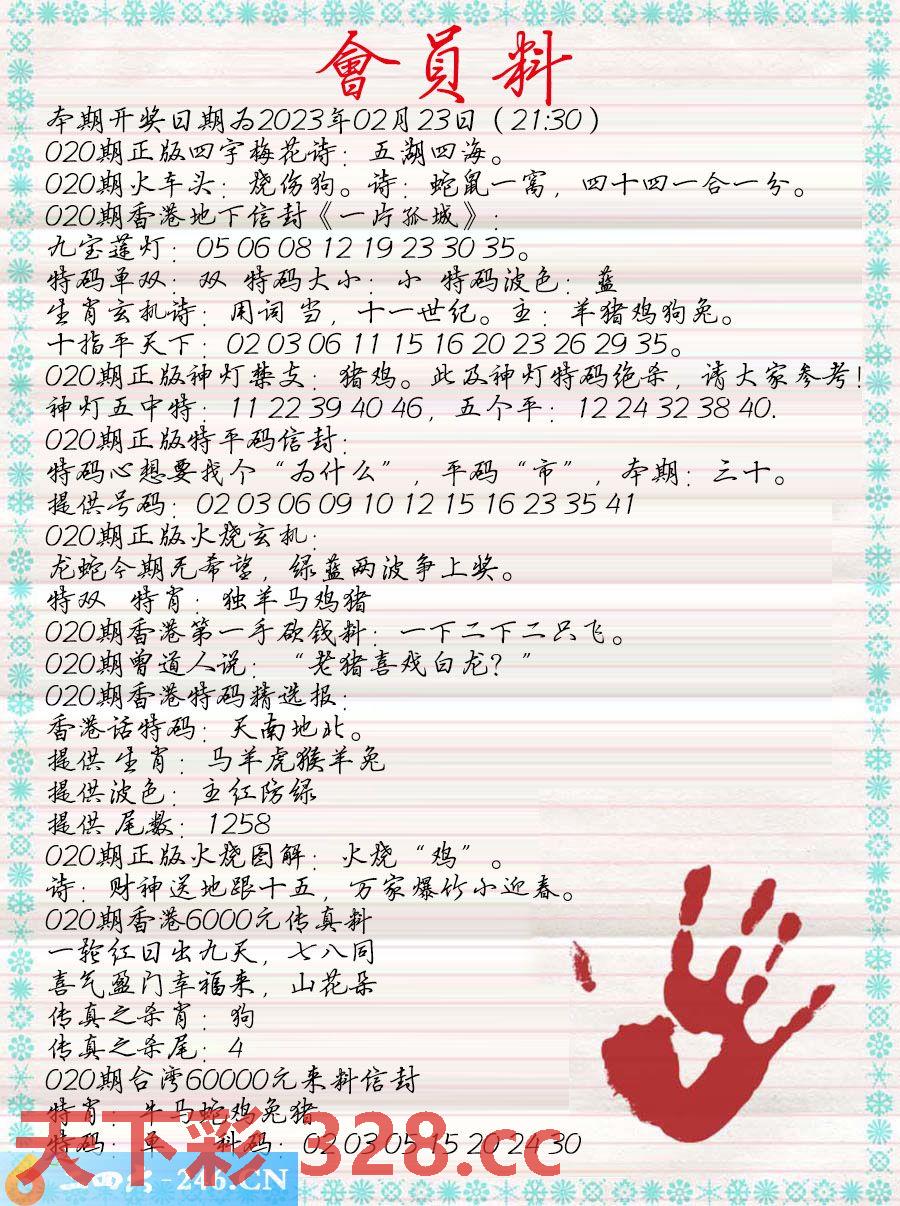 會員料
本期开奖日期为2023年02月23日（21:30）
020期正版四字梅花诗：五湖四海。
020期火车头：烧伤狗。诗：蛇鼠一窝，四十四一合一分。
020期香港地下信封《一片孤城》：
九宝莲灯：05 06 08 12 19 23 30 35。
特码单双：双 特码大小：小 特码波色：蓝
生肖玄机诗：用词 当，十一世纪。主：羊猪鸡狗兔。
十指平天下：02 03 06 11 15 16 20 23 26 29 35。
020期正版神灯禁支：猪鸡。此及神灯特码绝杀，请大家参考！
神灯五中特：11 22 39 40 46，五个平：12 24 32 38 40.
020期正版特平码信封：
特码心想要找个“为什么”，平码“市”，本期：三十。
提供号码：02 03 06 09 10 12 15 16 23 35 41
020期正版火烧玄机：
龙蛇今期无希望，绿蓝两波争上奖。
特双 特肖：独羊马鸡猪
020期香港第一手砍钱料：一下二下二只飞。
020期曾道人说：“老猪喜戏白龙？”
020期香港特码精选报：
香港话特码：天南地北。
提供 生肖：马羊虎猴羊兔
提供波色：主红防绿
提供 尾数：1258
020期正版火烧图解：火烧“鸡”。
诗：财神送地跟十五，万家爆竹小迎春。
020期香港6000元传真料
一轮红日出九天，七八同
喜气盈门幸福来，山花朵
传真之杀肖：狗
传真之杀尾：4
020期台湾60000元来料信封
特肖：牛马蛇鸡兔猪
特码：单 料码：02 03 05 15 20 24 30
天下彩 328.cc
二四六-246.CN